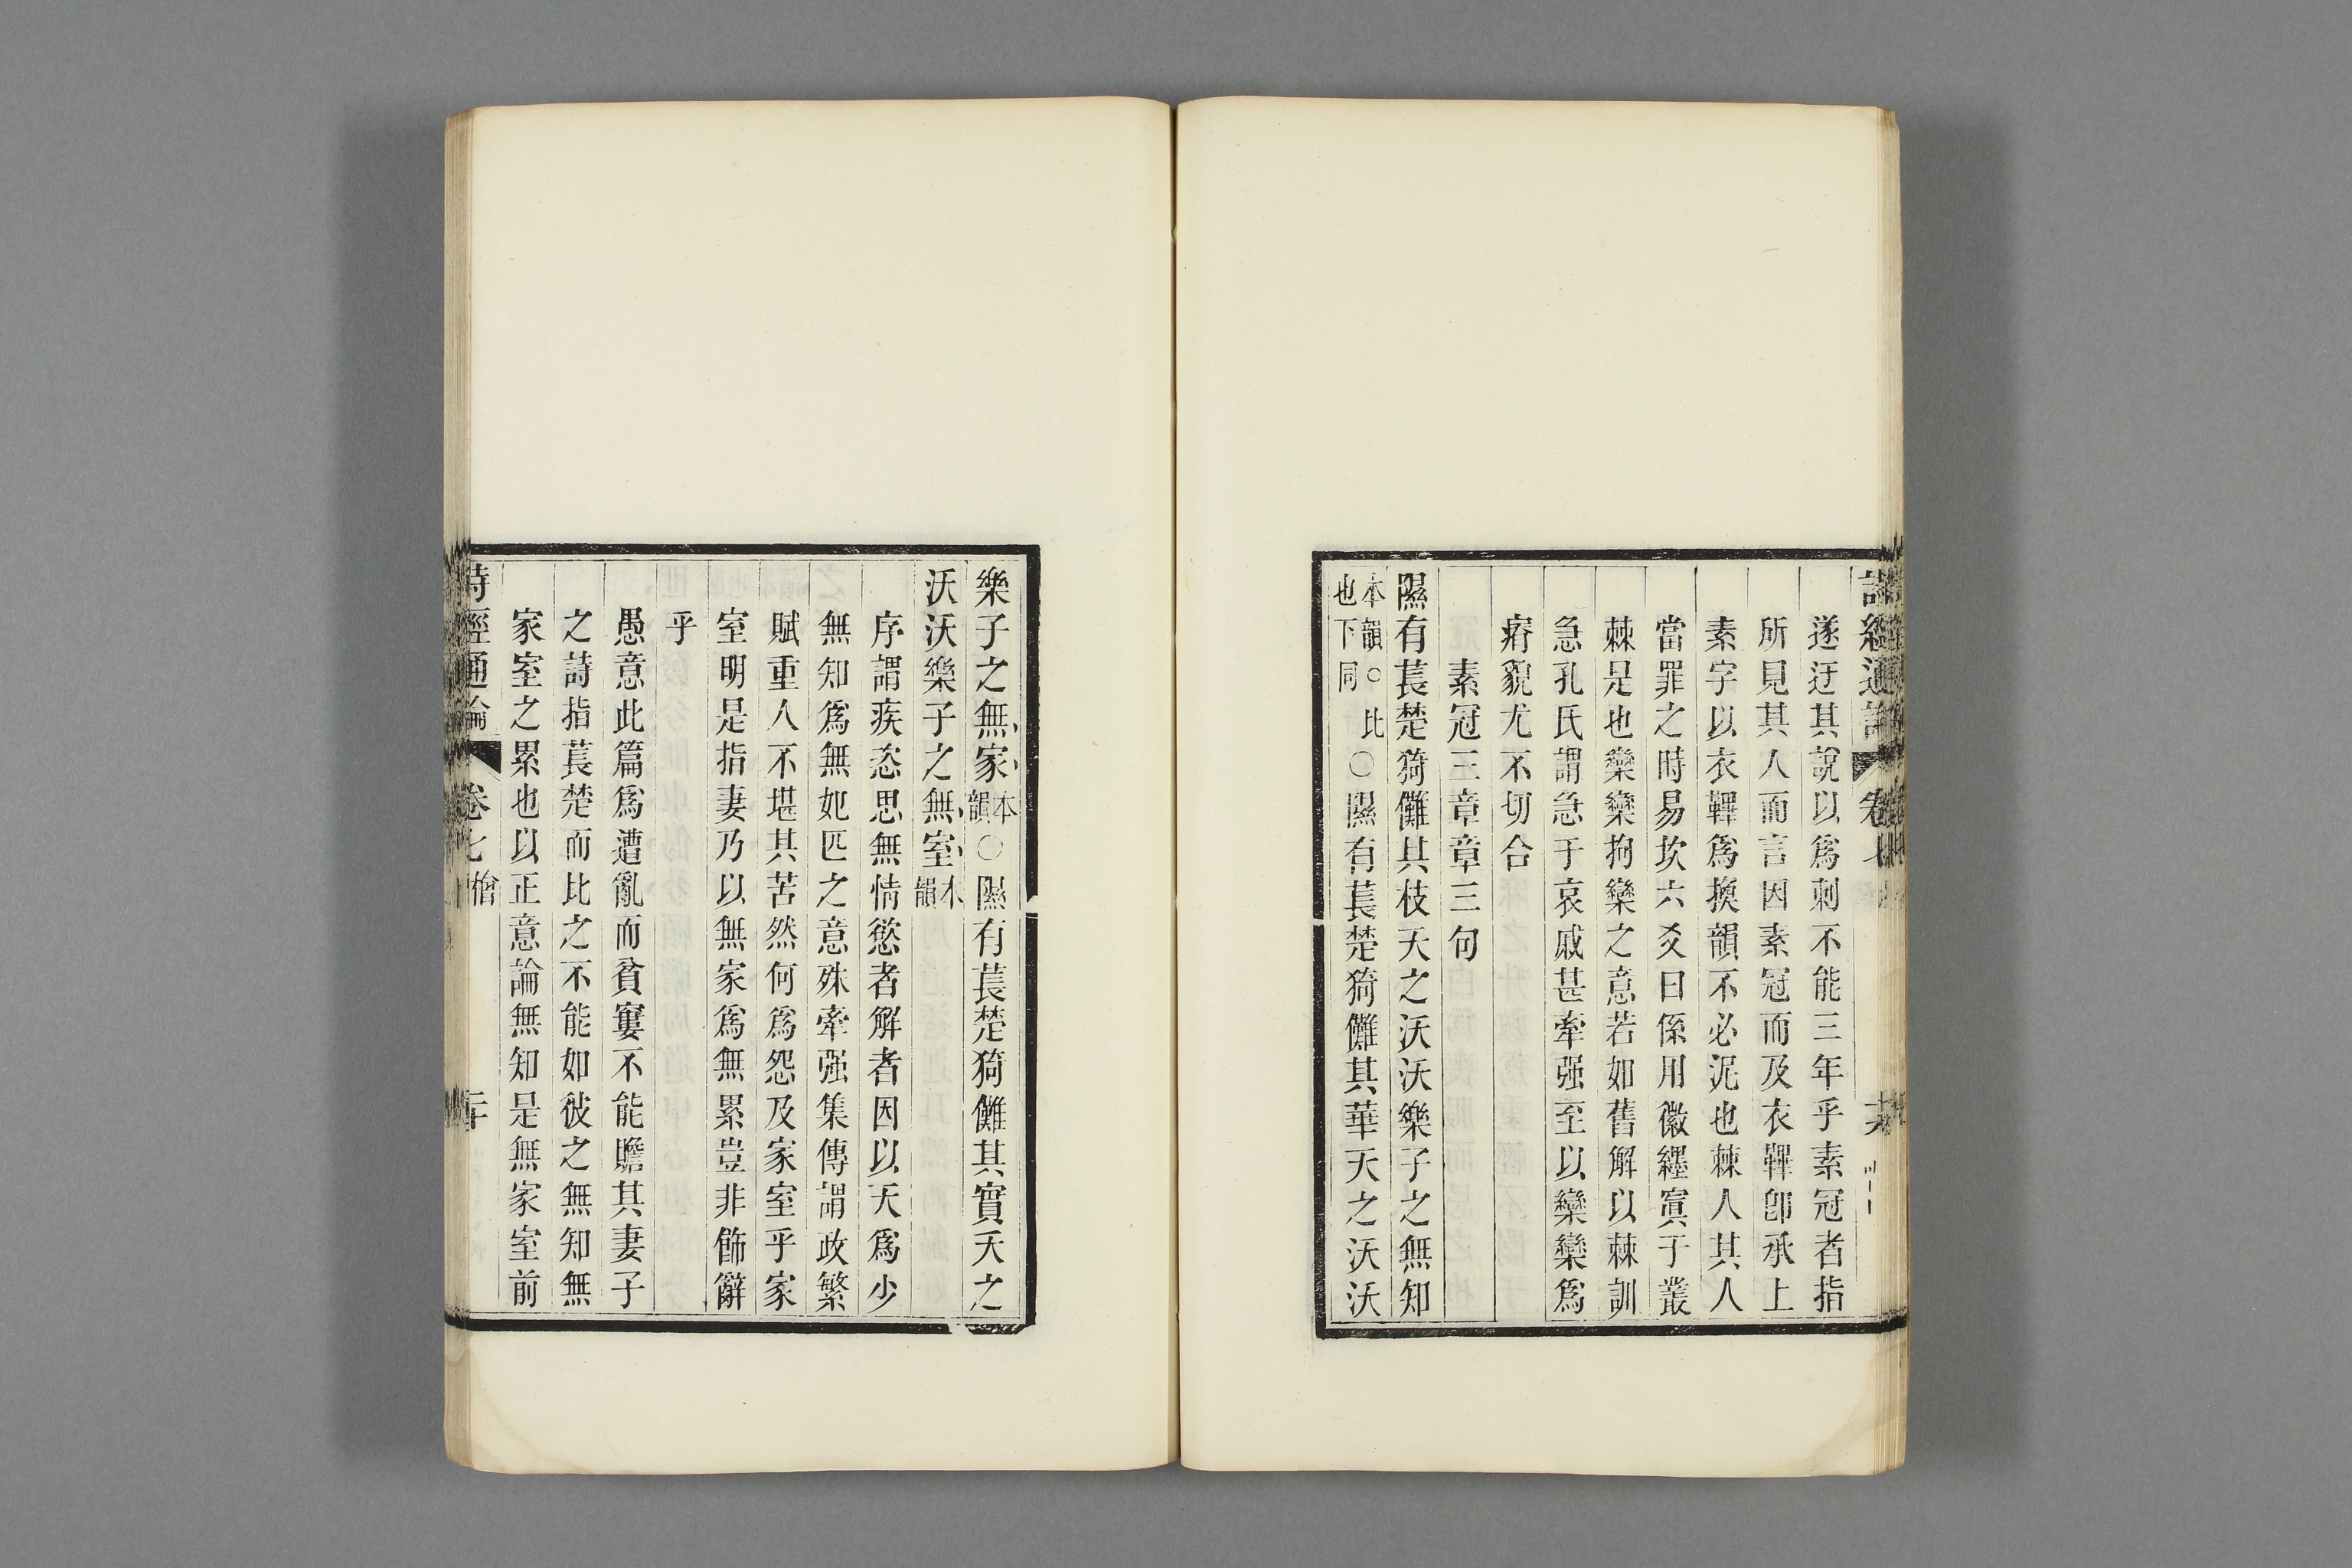 詩經通論 卷七
遂迂其說以爲刺不能三年乎素冠者指
所見其人而言因素冠而及衣鞸卽承上
素字以衣鞸爲換韻不必泥也棘人其人
當罪之時易坎六爻曰係用徽纆寘于叢
棘是也欒欒拘欒之意若如舊解以棘訓
急孔氏謂急于哀戚甚牽强至以欒欒爲
瘠貌尤不切合
素冠三章章三句
隰有萇楚猗儺其枝夭之沃沃樂子之無知
本韻○比也下同○隰有萇楚猗儺其華夭之沃沃
樂子之無家本韻○隰有萇楚猗儺其實夭之
沃沃樂子之無室本韻
序謂疾恣思無情慾者解者因以夭爲少
無知爲無妃匹之意殊牽强集傳謂政繁
賦重人不堪其苦然何爲怨及家室乎家
室明是指妻乃以無家爲無累豈非飾辭
乎
愚意此篇爲遭亂而貧窶不能贍其妻子
之詩指萇楚而比之不能如彼之無知無
家室之累也以正意論無知是無家室前
詩經通論 卷七 檜 二十